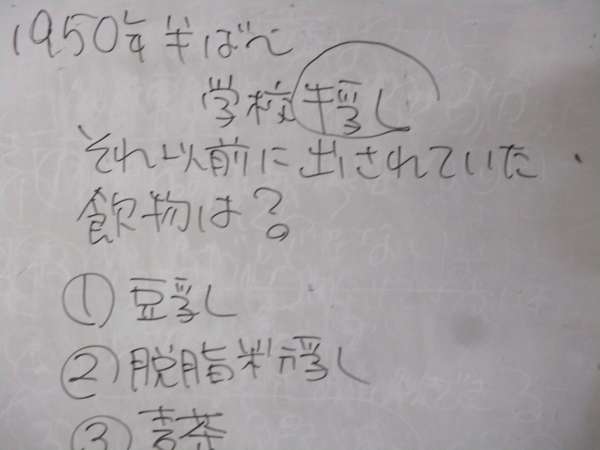 1950年半ばで
学校牛乳
それ以前に出されていた
飲物は?
① 豆乳
② 脱脂粉乳
③ 青茶